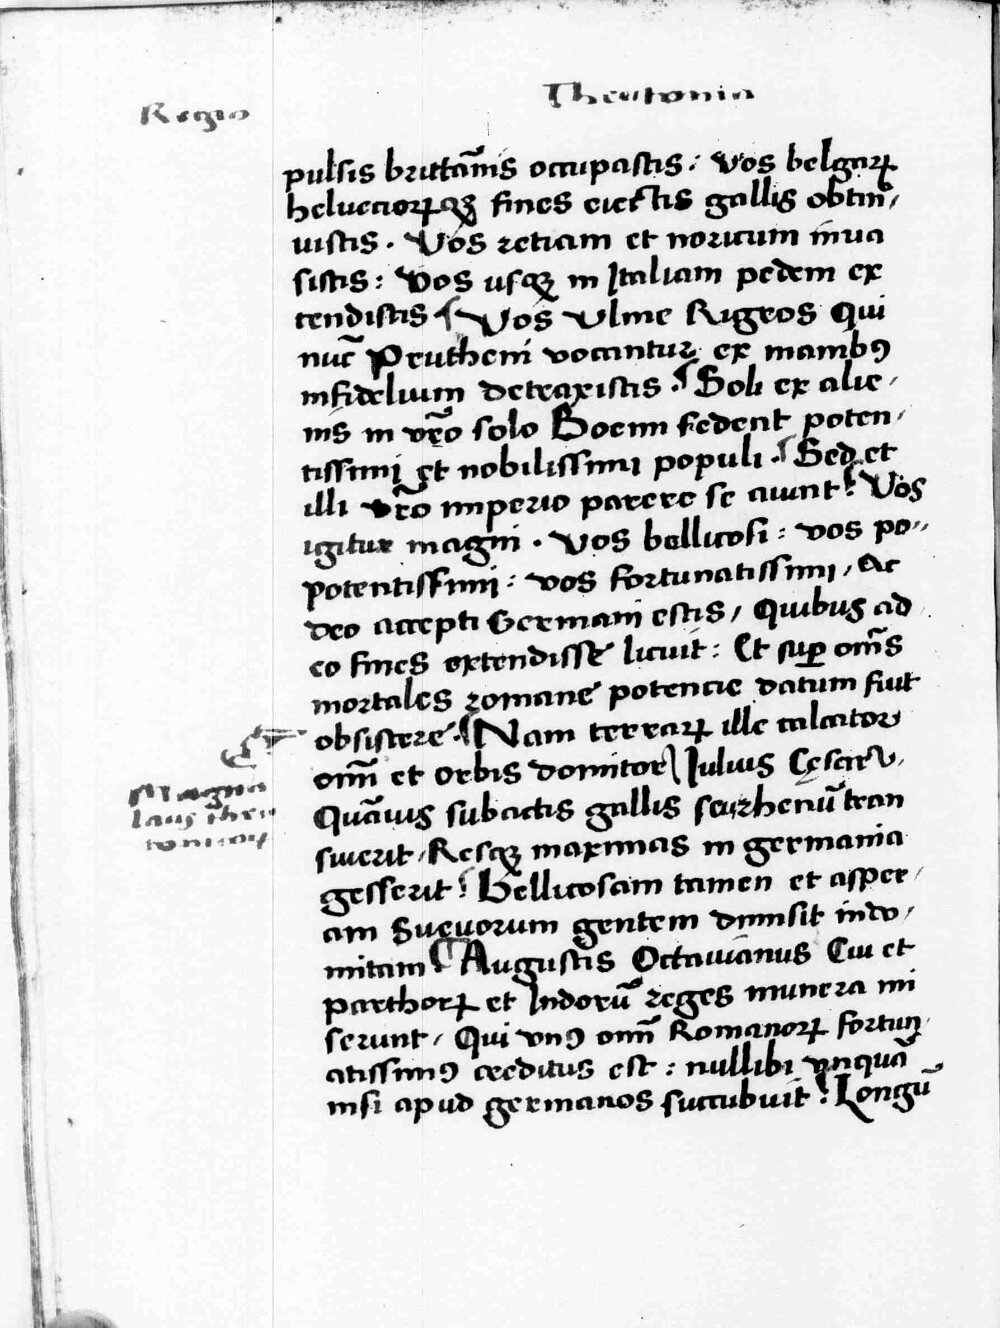 Regio
Theutonia
pulsis brittānis occupastis: Vos belgaꝝ
helueciorꝝqꝫ fines eiectis gallis obtin̄/
uistis. Vos retiam et noricum inua
sistis: Vos usqꝫ in Italiam pedem ex
tendistis Vos Ulme Rugeos Qui
nūc Prutheni vocantur ex manibꝰ
infidelium detraxistis. Soli ex alie/
nis in vr̄o solo Boemi sedent poten/
tissimi et nobilissimi populi. Sed et
illi vr̄o imperio parere se aiunt. Vos
igitur magni. Vos bellicosi: vos po//
potentissimi: vos fortunatissimi, Ac
deo accepti Germani estis, Quibus ad
eo fines extendisse licuit: Et suꝑ om̄s
mortales romane potencie datum fuit
obsistere. Nam terraꝝ ille calcator
om̄ et orbis domitor Iulius Cęsar
Quāuis subactis gallis se rhenū tran
siuerit, Resqꝫ maximas in germania
gesserit: Bellicosam tamen et asper/
am Sueuorum gentem dimisit indo/
mitam Augustus Octauianus Cui et
parthorꝝ et Indorū reges munera mi
serunt, Qui vnꝰ om̄ Romanorꝝ fortun/
atissimꝰ creditus est: nullibi vnquā
nisi apud germanos succubuit. Longū
Magna
laus theu
tonicoꝝ